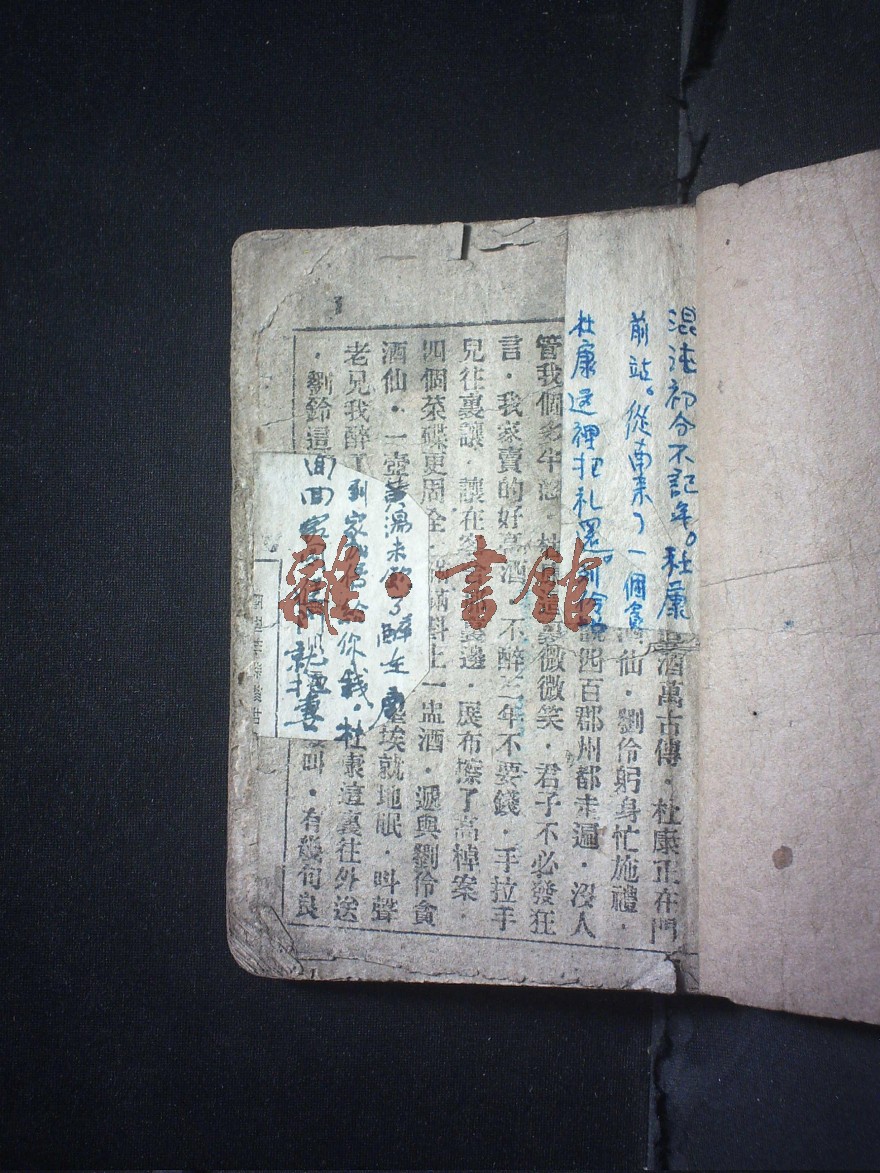 混沌初分不記年。杜康 酒萬古傳．杜康正在門
前站。從南来了一個貪 酒仙．劉伶躬身忙施禮．
杜康这裡把礼還。刘伶 說四百郡州都走遍．沒人
管我個 杜 裏微微笑．君子不必發狂
言．我家賣的好 酒．不醉三年不要錢．手拉手
兒往裏讓．讓在 裏邊．展布擦了高棹案．
四個菜碟更周全 滿滿斟上一盅酒．遞與劉伶貪
酒仙．一壺黄湯未飲了醉在 埃就地眠．叫聲
老兄我醉了到家 給你我．杜康這裏往外送
．劉鈴這 回 家 就把妻 叫．有幾句良
雜·書館